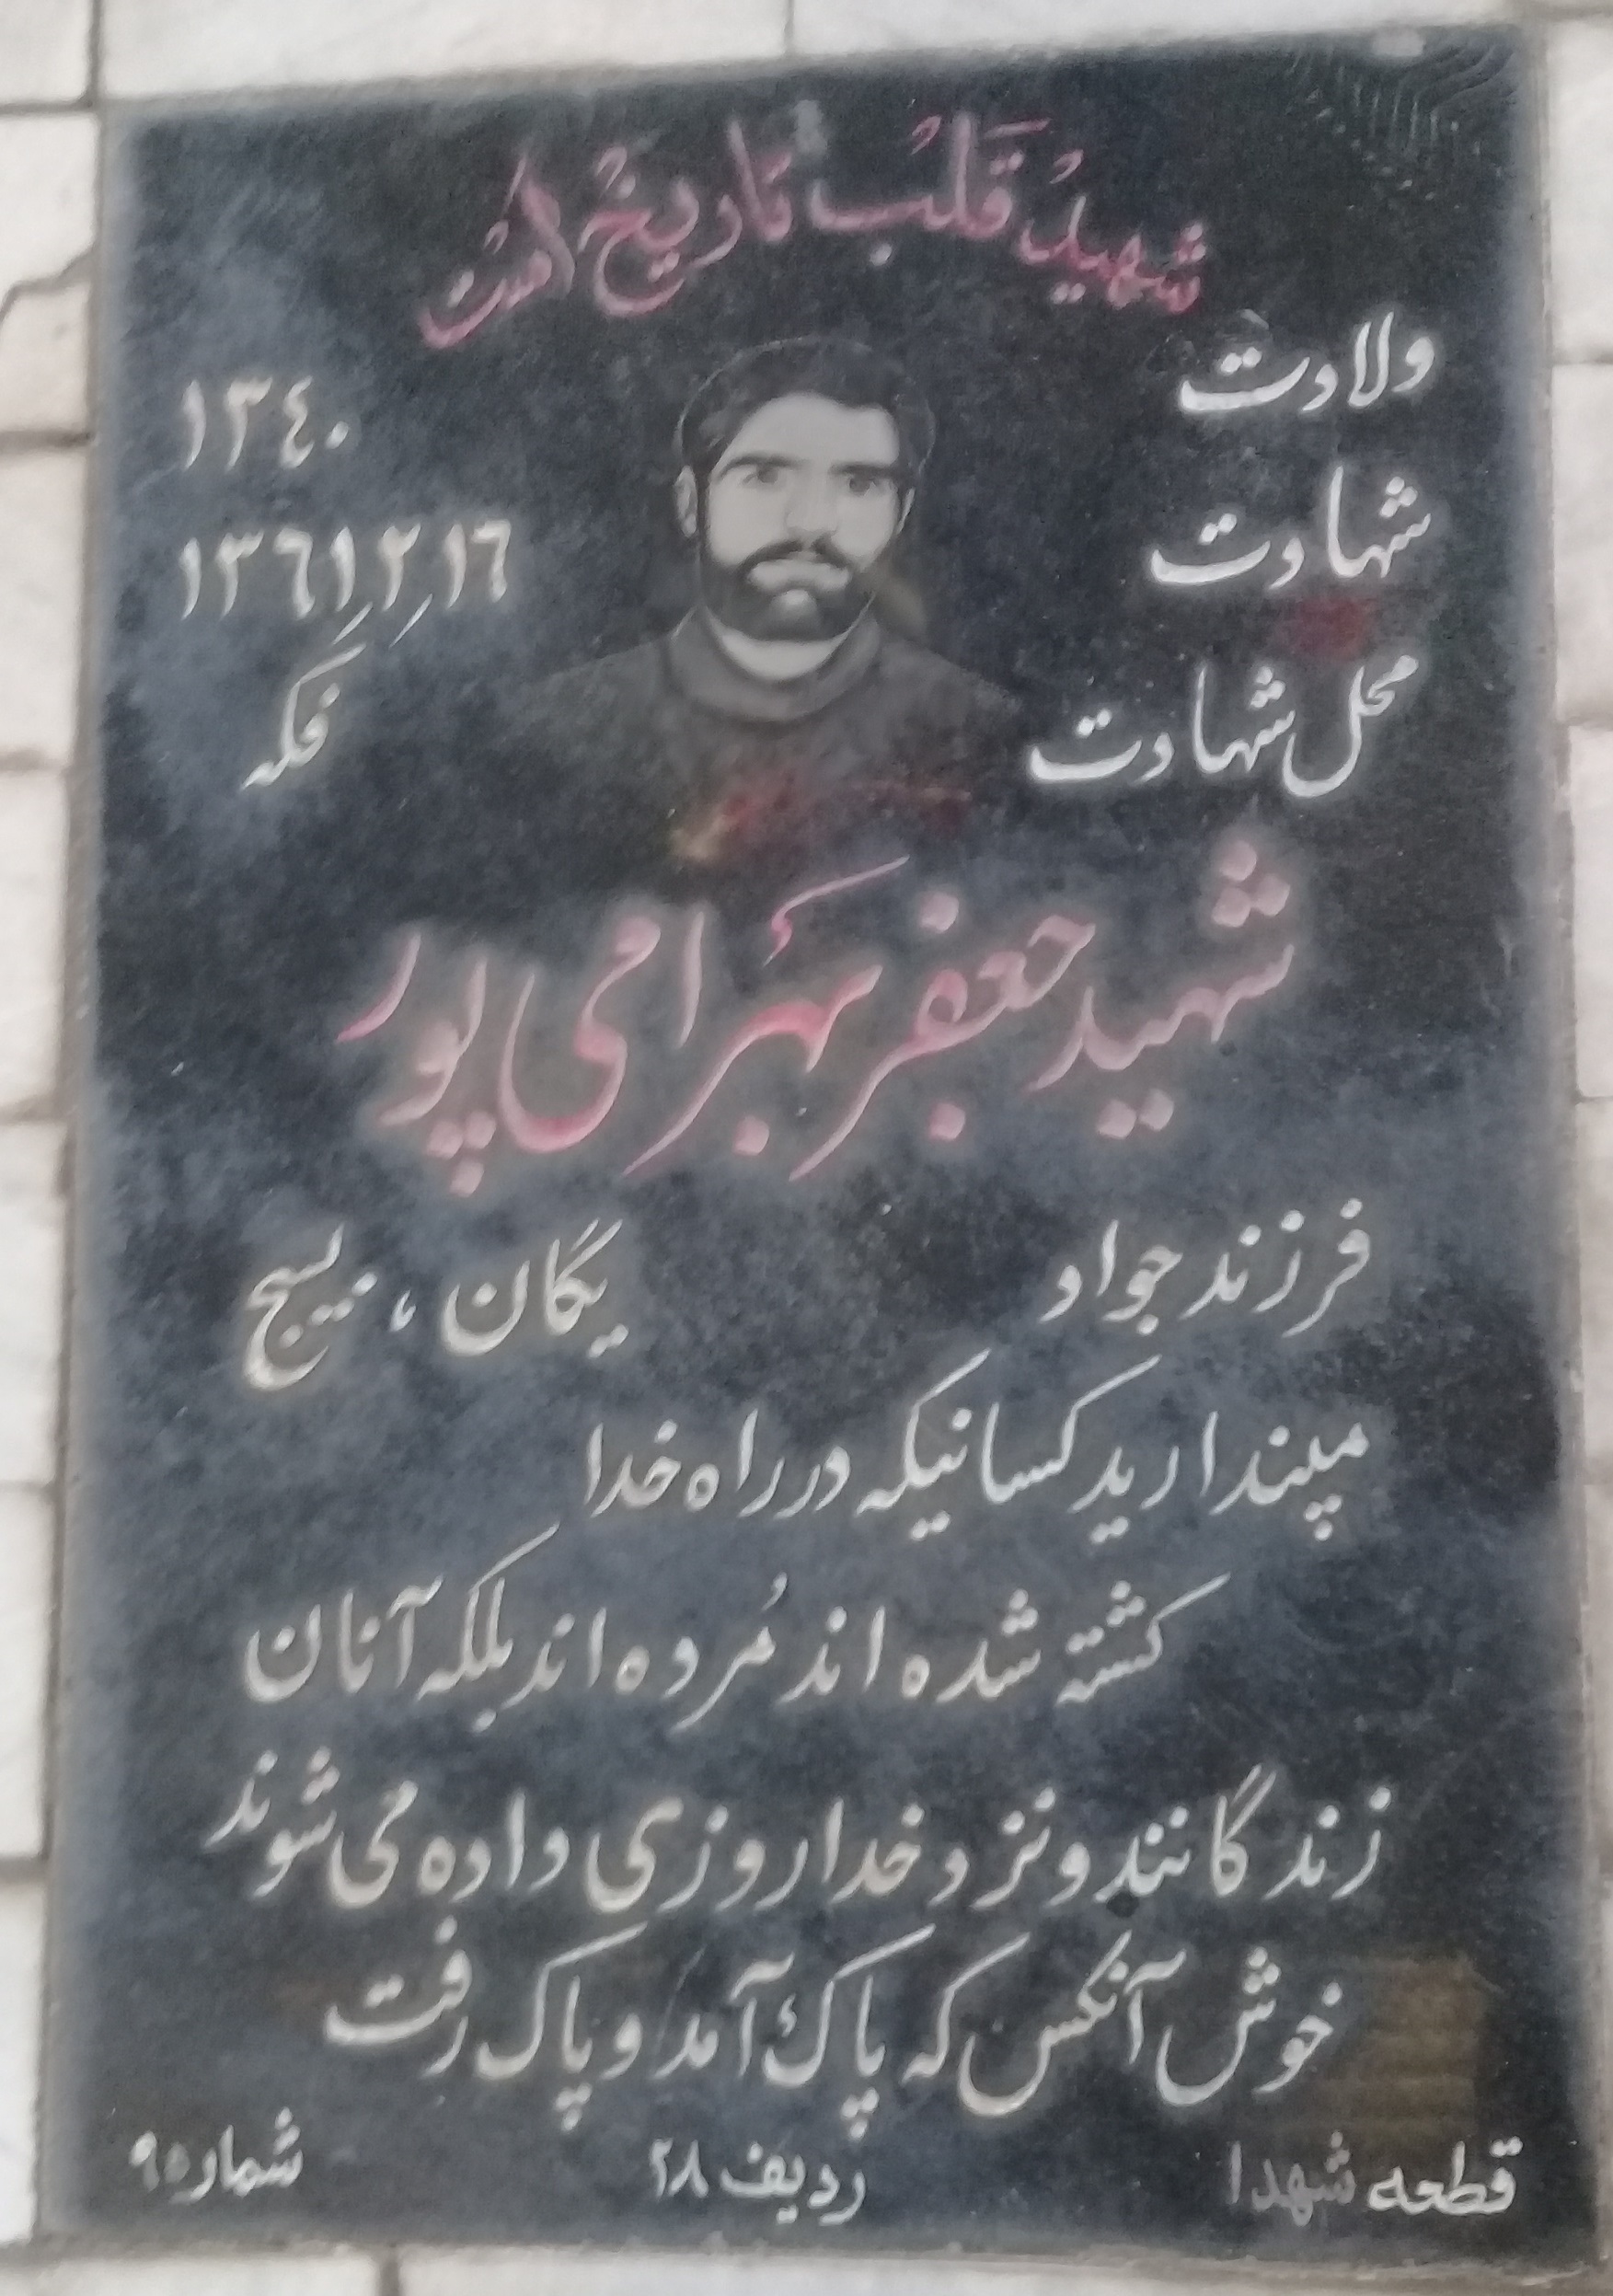 شهید قَلبُ تاریخ است
ولادت ١٣٤٠
شهادت ١٣٦١٫٢٫١٦
محل شهادت فکه
شهید جعفر بهرامی پور
فرزند جواد یگان ، بسیج
مپندارید کسانیکه در راه خدا
کشته شده اند مُرده اند بلکه آنان
زندگانند و نزد خدا روزی داده می شوند
خوش آنکس که پاک آمد و پاک رفت
قطعه شهدا ردیف ٢٨ شماره ٩